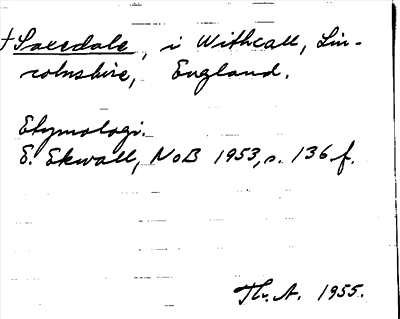 †Saxedale, i Withcall, Lin-
colnshire, England.
Etymologi.
E. Ekwall, NoB 1953, s. 136 f.
Th. A. 1955.